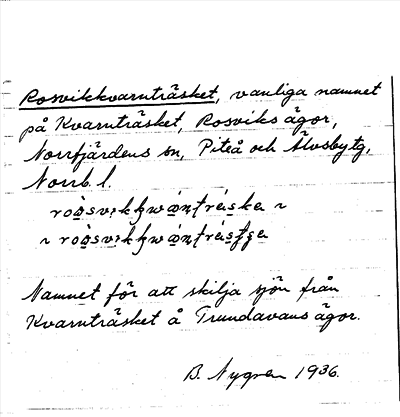 Rosvikkvarnträsket, vanliga namnet
på Kvarnträsket, Rosviks ägor,
Norrfjärdens sn, Piteå och Älvsbytg,
Norrb. l.
Namnet för att skilja sjön från
Kvarnträsket å Trundavans ägor.
B. Nygren 1936.